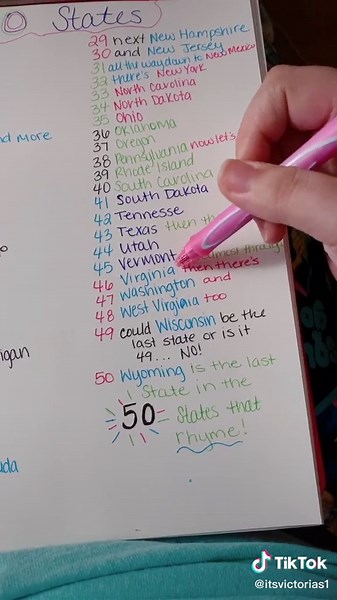 0 States
29 next New Hampshire
30 and New Jersey
31 all the way down to New Mexico
32 there's New York
33 North Carolina
34 North Dakota
35 Ohio
nd more
36 Oklahoma
37 Oregon
38 Pennsylvania now let's
39 Rhode Island
40 South Carolina
41 South Dakota
42 Tennesse
43 Texas then th
44 Utah
45 Vermont almost through
46 Virginia then there's
47 Washington and
48 West Virginia too
49 could Wisconsin be the
last state or is it
49... NO!
igan
50 Wyoming Is the last
State in the
50 States that
rhyme!
ada
TikTok
@itsvictorias1